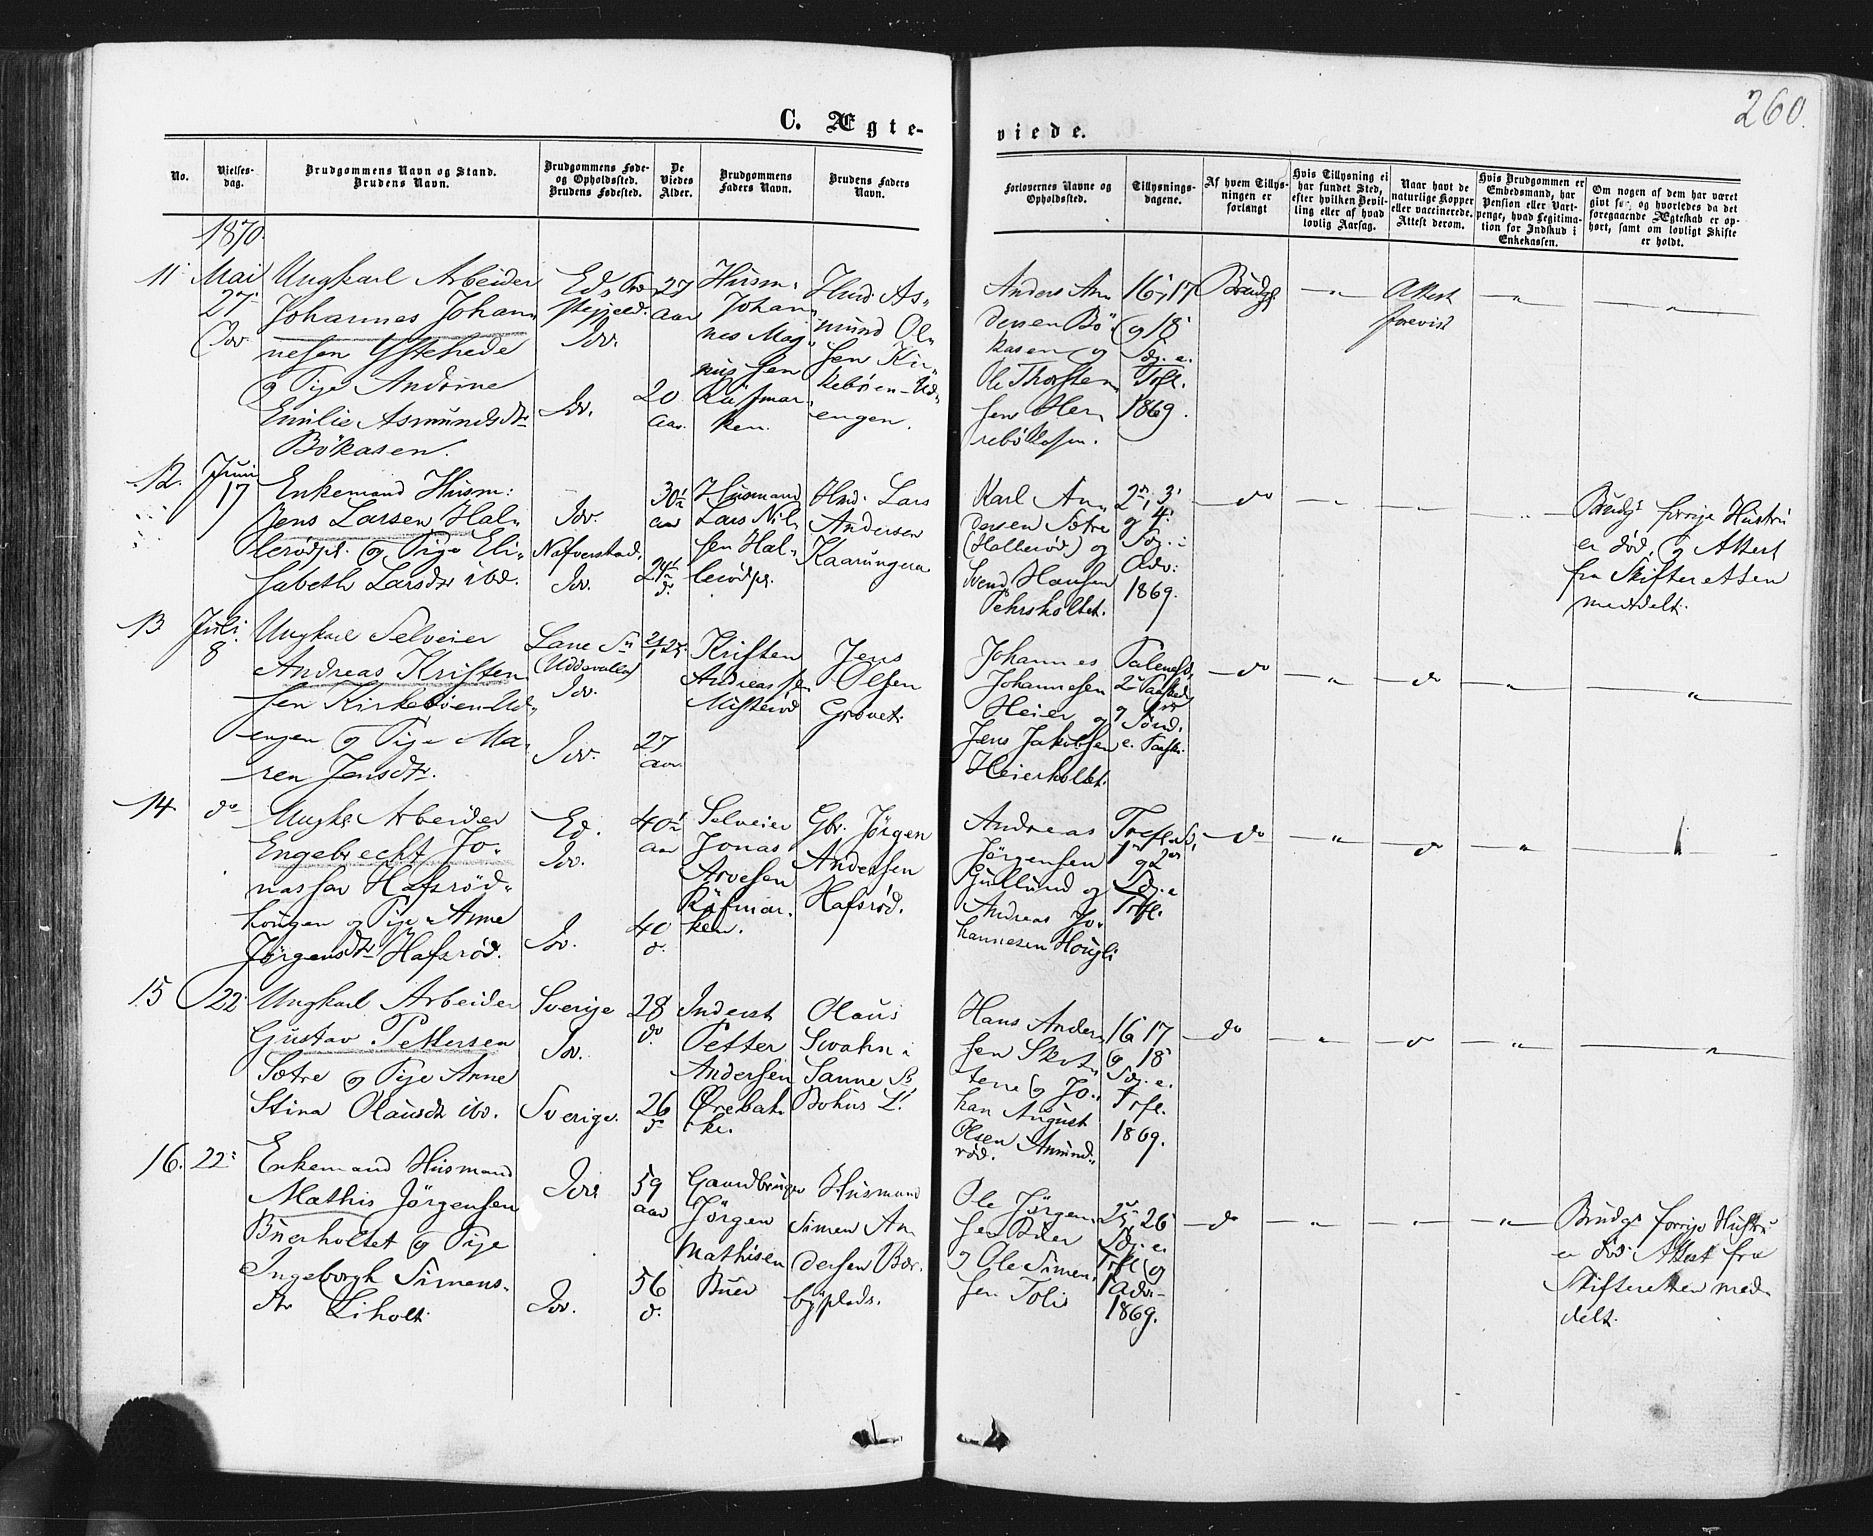 260.
C. Ægte-
viede.
No.
Vielses-
dag.
Brudgommens Navn og Stand.
Brudens Navn.
Brudgommens Føde-
og Opholdssted.
Brudens Fødested.
De
Viedes
Alder.
Brudgommens
Faders Navn.
Brudens Faders
Navn.
Forlovernes Navne og
Opholdssted.
Tillysnings-
dagene.
Af hvem Tillys-
ningen er
forlangt
Hvis Tillysning ei
har fundet Sted,
efter hvilken Bevil-
ling eller af hvad
lovlig Aarsag.
Naar havt de
naturlige Kopper
eller vaccinerede.
Attest derom.
Hvis Brudgommen er
Embedsmand, har
Pension eller Vart-
penge, hvad Legitima-
tion for Indskud i
Enkekassen.
Om nogen af dem har været
gift før, og hvorledes da det
foregaaende Ægteskab er op-
hørt, samt om lovligt Skifte
er holdt.
1870.
11
Mai
27
Idv.
Ungkarl Arbeider
Johannes Johan-
nesen Ystehede
og Pige Andrine
Emilie Asmundsdtr
Bökasen.
Idv.
Idv.
27
aar
20
aar.
Husm:
Johan
nes Mag-
nussen
Räfmar-
ken.
Husm. As-
mund Ol-
sen Kir-
kebøen-Ud-
engen.
Anders An
dersen Bö-
kasen og
Ole Thorsten
sen Her
rebøkasen.
16, 17
og 18
Søg. e.
Trfl.
1869.
Brudg.
"
Attest
forevist
"
"
12.
Juni
17
Enkemand Husm:
Jens Larsen Hal-
lerødpl. og Pige Eli-
sabeth Larsdtr ibd.
Idv.
Nafverstad.
Idv.
30½
aar
24½
d.
Husmand
Lars Nil-
sen Hal-
lerødpl.
Husm. Lars
Andersen
Kaarungen
Karl An-
dersen Sotre
(Hallerød) og
Svend Hansen
Pehrsholtet.
2, 3
og 4
Søg. i
Adv:
1869.
do
"
"
"
Brudgs forrige Hustru
er død, og Attest
fra Skifteretten
meddelt.
13
Juli
8
Ungkarl Selveier
Andreas Kristen
sen Kirkebøen-Ud-
engen og Pige Ma-
ren Jensdtr.
Lane Sn
(Uddevalla)
Idv.
Idv.
27
aar
Kristen
Andreassen
Misterød
Jens
Olsen
Grovet.
Johannes
Johannesen
Heier og
Jens Jakobsen
Heierholtet.
do
"
do
"
"
14
do
Ungk. Arbeider
Engebrecht Jo-
nassen Hafsrød-
hougen og Pige Anne
Jörgensdtr Hafsrød.
Ed.
Idv.
Idv.
40½
aar
40
d.
Selveier
Jonas
Arvesen
Räfmar-
ken.
Gbr. Jörgen
Andersen
Hafsrød.
Andreas
Jörgensen
Gullund og
Andreas Jo-
hannesen Hougli
Søg. e
Trfl.
do
"
do
"
15
22
Ungkarl Arbeider
Gustav Pettersen
Sotre og Pige Anne
Stina Olausdtr ibd.
Sverige
Idv.
Sverige.
28
d.
26
d.
Inderst
Petter
Andersen
Ørebak-
ke.
Olaus
Swahn i
Sanne Sn
Bohus L.
Hans Ander
sen Skot-
tene og Jo-
han August
Olsen Amund-
rød.
16 17
og 18
Søg. e.
Trfl.
1869.
do
"
do
"
"
16.
22
Enkemand Husmand
Mathis Jörgensen
Buerholtet og Pige
Ingeborgh Simens-
dtr Liholt.
Idv.
Idv.
59
aar
56
d.
Gaardbruger
Jörgen
Mathisen
Buer
Husmand
Simen An
dersen Bær-
byplads.
Ole Jörgen
sen Buer
og Ole Simen-
sen Tolis
25, 26
Søg. e
Trfl. og
1 Adv.
1869.
do
"
"
"
Brudgs forrige Hustru
er død. Attest fra
Skifteretten med-
delt.